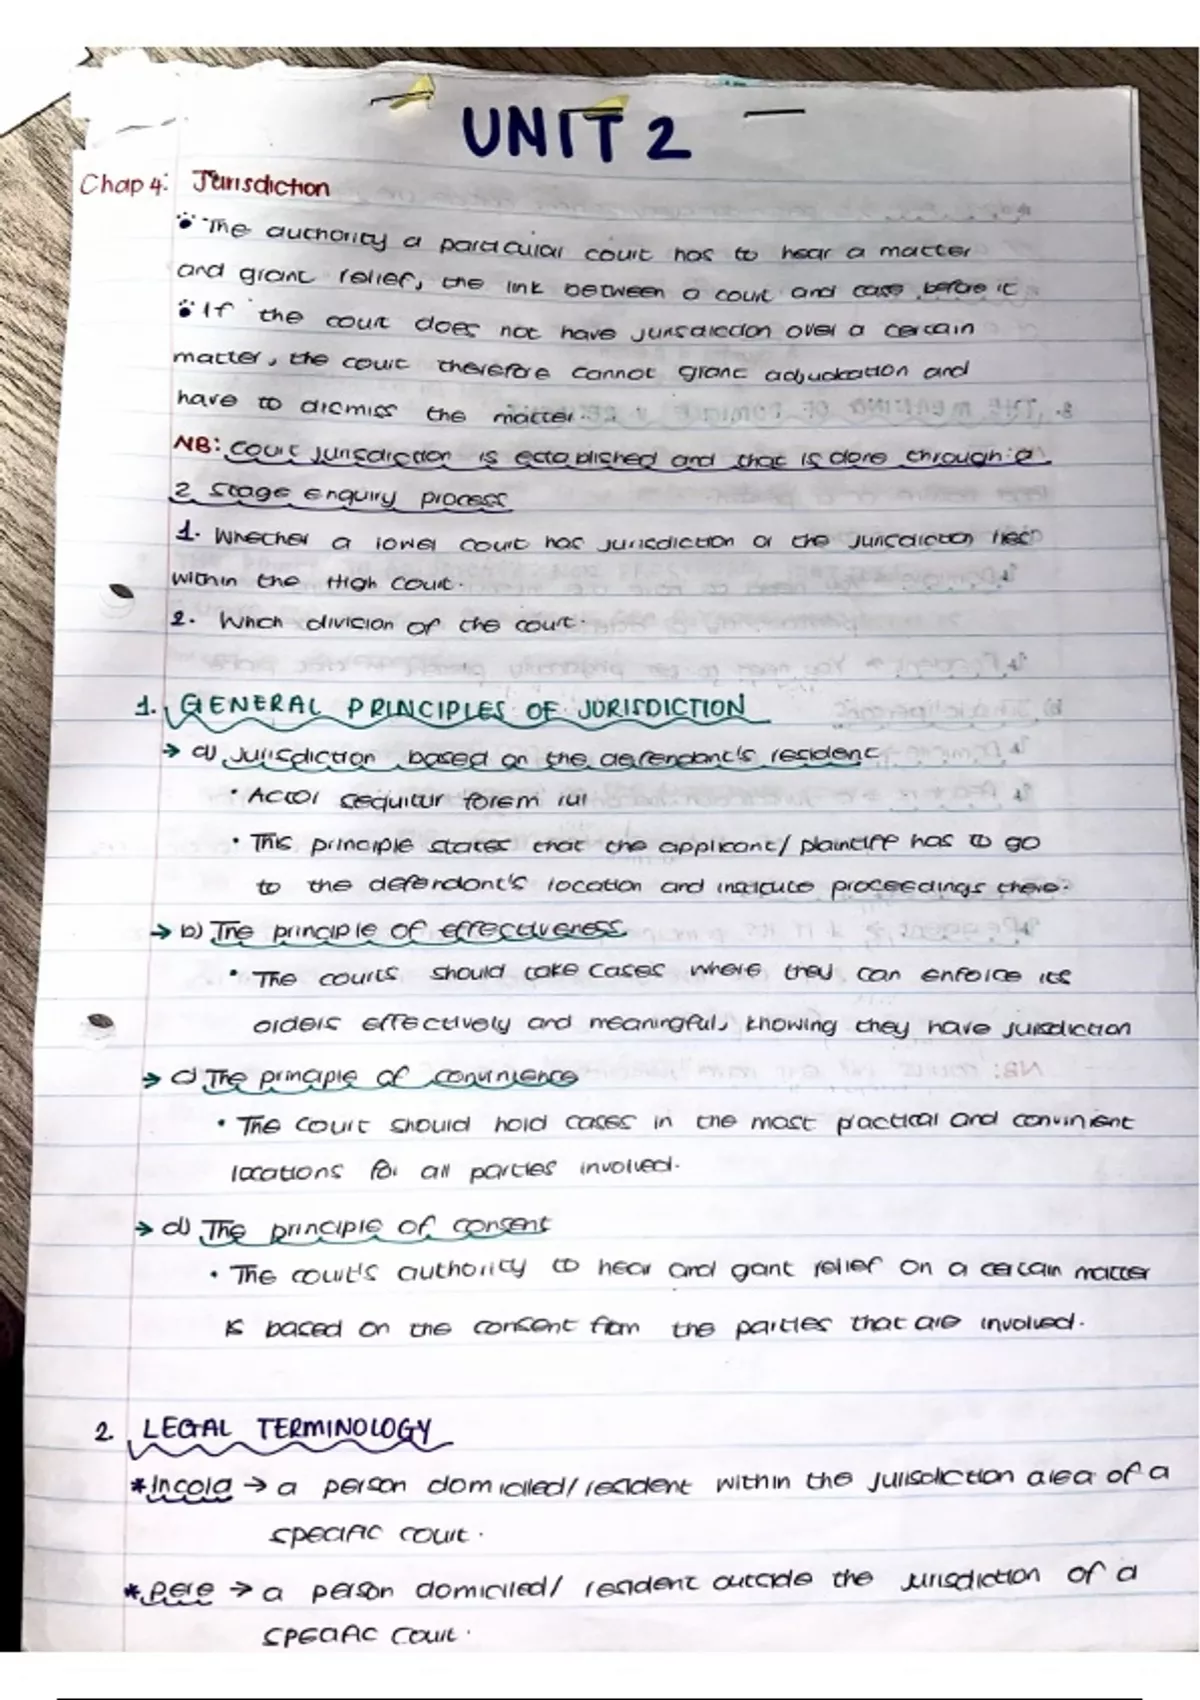 UNIT 2
Chap 4: Jurisdiction
The authority a particular court has to hear a matter
and grant relief, the link between a court and case before it
If the court does not have jurisdiction over a certain
matter, the court therefore cannot grant adjudication and
have to dismiss the matter.
NB: Court jurisdiction is established and that is done through a
2 stage enquiry process
1. Whether a lower court has jurisdiction or the jurisdiction lies
within the High Court.
2. Which division of the court.
1. GENERAL PRINCIPLES OF JURISDICTION
→ a) Jurisdiction based on the defendant's resident
• Actor sequitur forem rui
• This principle states that the applicant/ plaintiff has to go
to the defendant's location and institute proceedings there.
→ b) The principle of effectiveness
• The courts should take cases where they can enforce its
orders effectively and meaningful, knowing they have jurisdiction
→ c) The principle of convinience
• The court should hold cases in the most practical and convinient
locations for all parties involved.
→ d) The principle of consent
• The court's authority to hear and gant relief on a certain matter
is based on the consent from the parties that are involved.
2. LEGAL TERMINOLOGY
* Incola → a person domiciled/ resident within the jurisdiction area of a
specific court.
* pere → a person domiciled/ resident outside the jurisdiction of a
specific court.